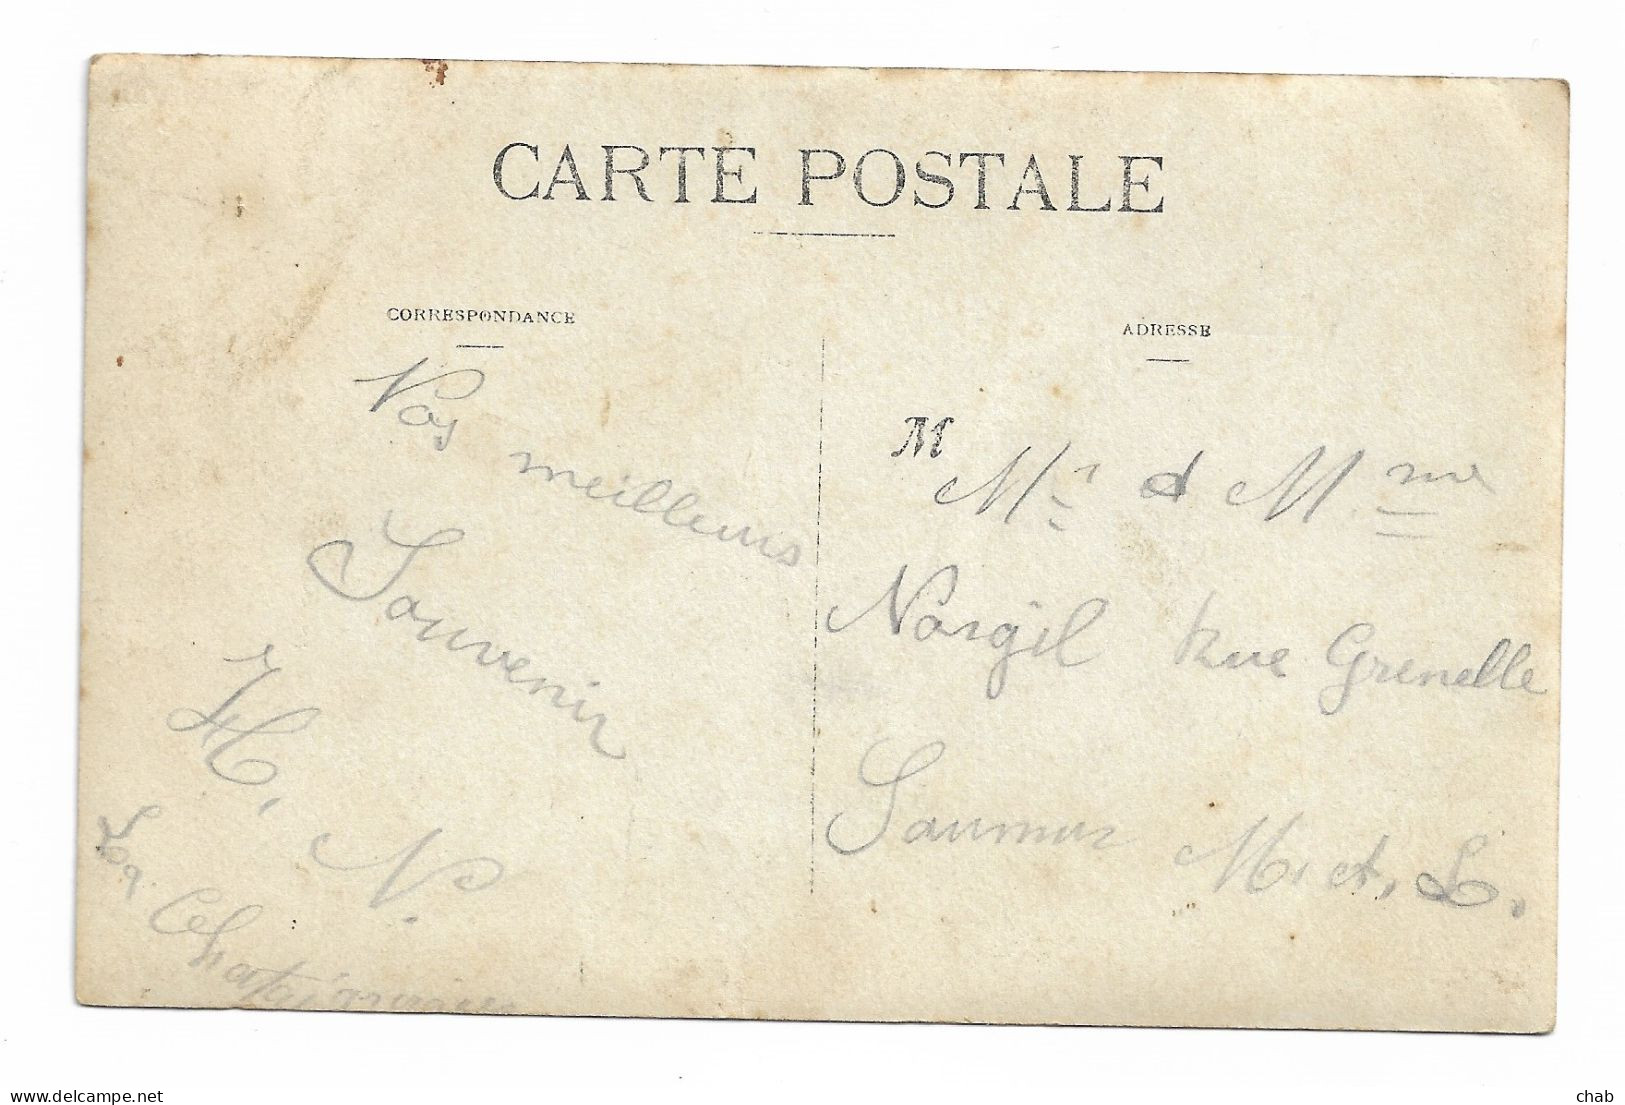 CARTE POSTALE
CORRESPONDANCE
Nos meilleurs
Souvenir
H. N.
La Chataigneraie
ADRESSE
M
Mr et Mme
Norgil Rue Grenelle
Saumur M. et. L.
© delcampe.net
chab